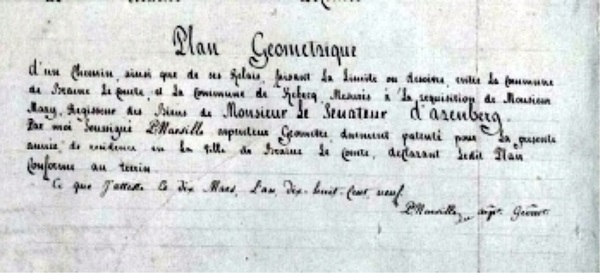 Plan Geometrique
d'un Chemin, ainsi que de ses Relais, faisant La Limite ou desoivre entre La Commune
de Braine Le Comte, et La Commune de Rebecq, Mesurés à La requisition de Monsieur
Mary, Regisseur des Biens de Monsieur Le Senateur d'arenberg.
Par moi Soussigné arpenteur Geometre, duement patenté pour La presente
année, de residence en La Ville de Braine Le Comte, declarant Ledit Plan
Conforme au terrin
Ce que J'atteste Ce dix Mars, L'an dix-huit-Cent neuf.
arpt. Geomet.